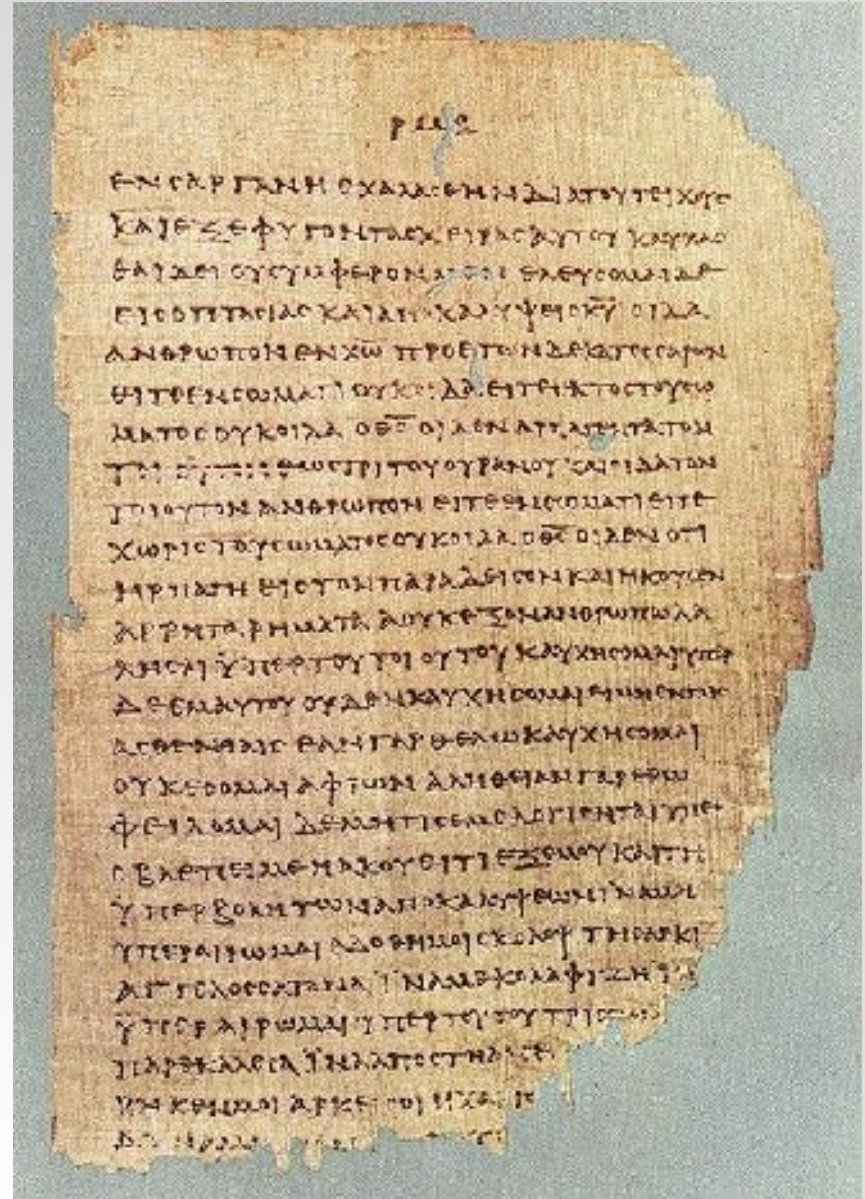 ΕΝ ϹΑΡΓΑΝΗ ΕΧΑΛΑϹΘΗΝ ΔΙΑ ΤΟΥ ΤΕΙΧΟΥϹ
ΚΑΙ ΕΞΕΦΥΓΟΝ ΤΑϹ ΧΕΙΡΑϹ ΑΥΤΟΥ ΚΑΥΧΑϹ
ΘΑΙ ΔΕΙ ΟΥ ϹΥΜΦΕΡΟΝ ΕΛΕΥϹΟΜΑΙ ΔΕ
ΕΙϹ ΟΠΤΑϹΙΑϹ ΚΑΙ ΑΠΟΚΑΛΥΨΕΙϹ Κ̅Υ̅ ΟΙΔΑ
ΑΝΘΡΩΠΟΝ ΕΝ Χ̅Ω̅ ΠΡΟ ΕΤΩΝ ΔΕΚΑΤΕϹϹΑΡΩΝ
ΕΙΤΕ ΕΝ ϹΩΜΑΤΙ ΟΥΚ ΟΙΔΑ ΕΙΤΕ ΕΚΤΟϹ ΤΟΥ ϹΩ
ΜΑΤΟϹ ΟΥΚ ΟΙΔΑ Ο Θ̅Ϲ̅ ΟΙΔΕΝ ΑΡΠΑΓΕΝΤΑ ΤΟΝ
ΕΩϹ ΤΡΙΤΟΥ ΟΥΡΑΝΟΥ ΚΑΙ ΟΙΔΑ ΤΟΝ
ΤΟΙΟΥΤΟΝ ΑΝΘΡΩΠΟΝ ΕΙΤΕ ΕΝ ϹΩΜΑΤΙ ΕΙΤΕ
ΧΩΡΙϹ ΤΟΥ ϹΩΜΑΤΟϹ ΟΥΚ ΟΙΔΑ Ο Θ̅Ϲ̅ ΟΙΔΕΝ ΟΤΙ
ΗΡΠΑΓΗ ΕΙϹ ΤΟΝ ΠΑΡΑΔΕΙϹΟΝ ΚΑΙ ΗΚΟΥϹΕΝ
ΑΡΡΗΤΑ ΡΗΜΑΤΑ Α ΟΥΚ ΕΞΟΝ ΑΝΘΡΩΠΩ ΛΑ
ΛΗϹΑΙ ΫΠΕΡ ΤΟΥ ΤΟΙΟΥΤΟΥ ΚΑΥΧΗϹΟΜΑΙ ΥΠΕΡ
ΔΕ ΕΜΑΥΤΟΥ ΟΥΔΕΝ ΚΑΥΧΗϹΟΜΑΙ ΕΙ ΜΗ ΕΝ ΤΑΙϹ
ΑϹΘΕΝΕΙΑΙϹ ΕΑΝ ΓΑΡ ΘΕΛΩ ΚΑΥΧΗϹΟΜΑΙ
ΟΥΚ ΕϹΟΜΑΙ ΑΦΡΩΝ ΑΛΗΘΕΙΑΝ ΓΑΡ ΕΡΩ
ΦΕΙΔΟΜΑΙ ΔΕ ΜΗ ΤΙϹ ΕΜΕ ΛΟΓΙϹΗΤΑΙ ΥΠΕΡ
Ο ΒΛΕΠΕΙ ΜΕ Η ΑΚΟΥΕΙ ΤΙ ΕΞ ΕΜΟΥ ΚΑΙ ΤΗ
ΫΠΕΡΒΟΛΗ ΤΩΝ ΑΠΟΚΑΛΥΨΕΩΝ ΙΝΑ ΜΗ
ΥΠΕΡΑΙΡΩΜΑΙ ΕΔΟΘΗ ΜΟΙ ϹΚΟΛΟΨ ΤΗ ϹΑΡΚΙ
ΑΓΓΕΛΟϹ ϹΑΤΑΝΑ ΪΝΑ ΜΕ ΚΟΛΑΦΙΖΗ
ΫΠΕΡΑΙΡΩΜΑΙ ΥΠΕΡ ΤΟΥΤΟΥ ΤΡΙϹ
ΠΑΡΕΚΑΛΕϹΑ ΪΝΑ ΑΠΟϹΤΗ
ΚΕΝ ΜΟΙ ΑΡΚΕΙ ϹΟΙ Η ΧΑΡΙϹ